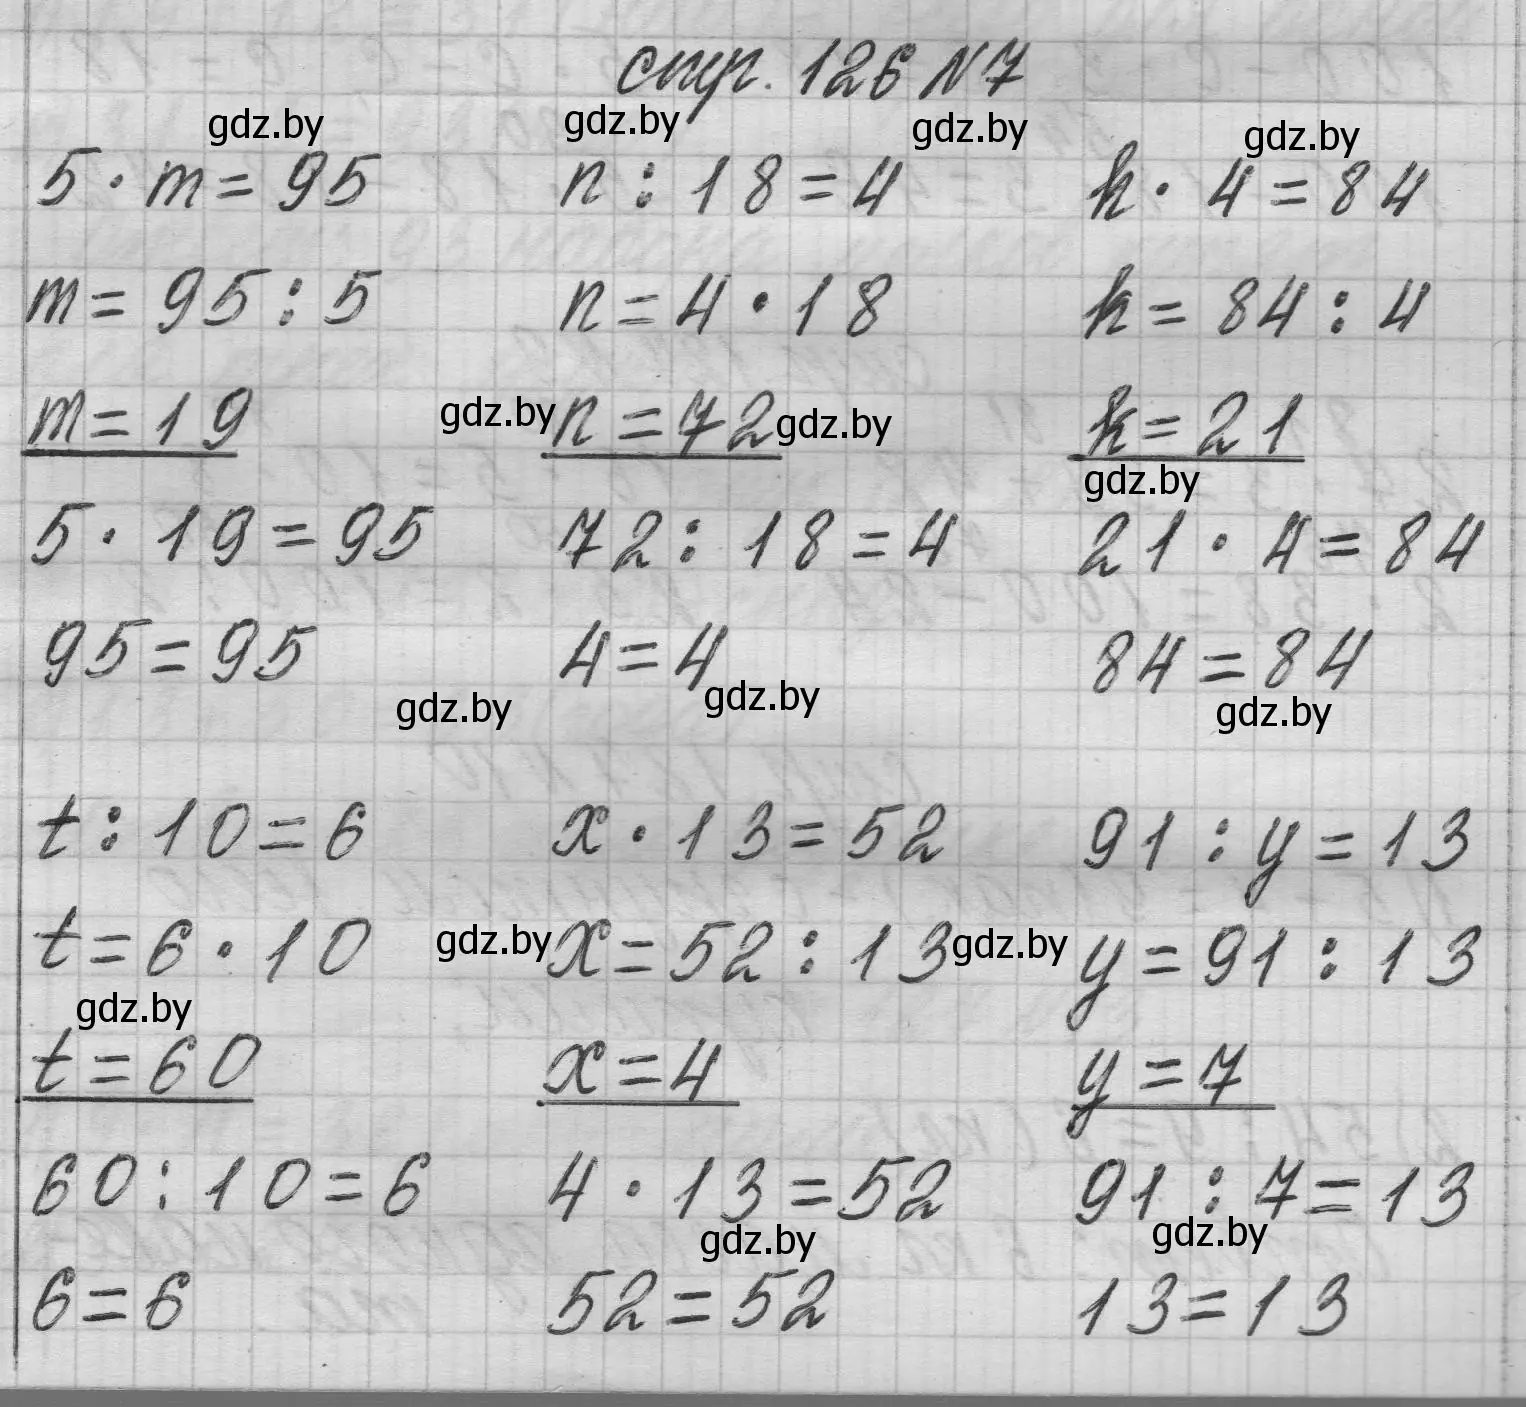 стр. 126 N7
gdz.by gdz.by gdz.by gdz.by
5 · m = 95 n : 18 = 4 k · 4 = 84
m = 95 : 5 n = 4 · 18 k = 84 : 4
m = 19 gdz.by n = 72 gdz.by k = 21
gdz.by
5 · 19 = 95 72 : 18 = 4 21 · 4 = 84
95 = 95 4 = 4 84 = 84
gdz.by gdz.by gdz.by
t : 10 = 6 x · 13 = 52 91 : y = 13
t = 6 · 10 gdz.by x = 52 : 13 gdz.by y = 91 : 13
gdz.by
t = 60 x = 4 y = 7
60 : 10 = 6 4 · 13 = 52 91 : 7 = 13
gdz.by gdz.by
6 = 6 52 = 52 13 = 13